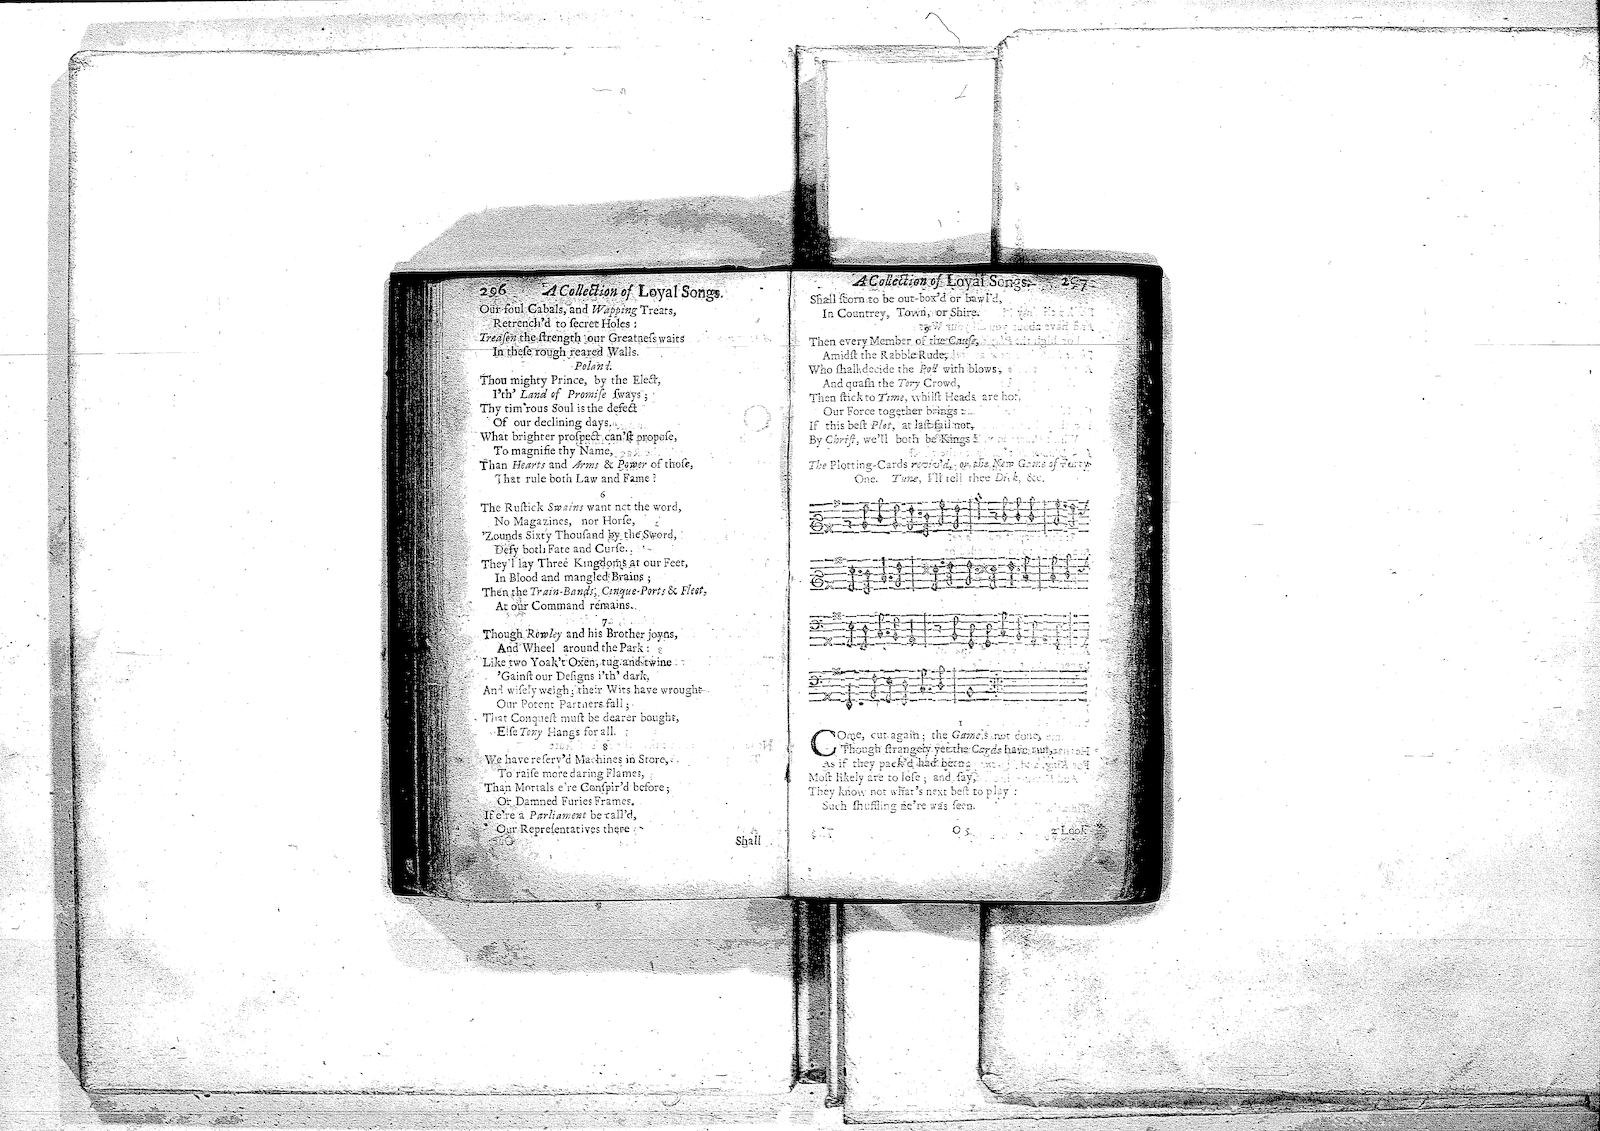 296 A Collection of Loyal Songs.
Our foul Cabals, and Wapping Treats,
Retrench'd to ſecret Holes :
Treaſon the ſtrength our Greatneſs waits
In theſe rough reared Walls.
Poland.
Thou mighty Prince, by the Elect,
I'th' Land of Promiſe ſways ;
Thy tim'rous Soul is the defect
Of our declining days,
What brighter proſpect can'ſt propoſe,
To magnifie thy Name,
Than Hearts and Arms & Power of thoſe,
That rule both Law and Fame ?
6
The Ruſtick Swains want not the word,
No Magazines, nor Horſe,
'Zounds Sixty Thouſand by the Sword,
Defy both Fate and Curſe.
They'l lay Three Kingdoms at our Feet,
In Blood and mangled Brains ;
Then the Train-Bands, Cinque-Ports & Fleet,
At our Command remains.
7
Though Rowley and his Brother joyns,
And Wheel around the Park :
Like two Yoak't Oxen, tug and twine
'Gainſt our Deſigns i'th' dark,
And wiſely weigh ; their Wits have wrought
Our Potent Partners fall ;
That Conqueſt muſt be dearer bought,
Elſe Tony Hangs for all.
8
We have reſerv'd Machines in Store,
To raiſe more daring Flames,
Than Mortals e're Conſpir'd before ;
Or Damned Furies Frames.
If e're a Parliament be call'd,
Our Repreſentatives there
Shall
A Collection of Loyal Songs. 297
Shall ſcorn to be out-box'd or bawl'd,
In Countrey, Town, or Shire.
9
Then every Member of the Cauſe,
Amidſt the Rabble Rude,
Who ſhall decide the Poll with blows,
And quaſh the Tory Crowd,
Then ſtick to Time, whilſt Heads are hot,
Our Force together brings :
If this beſt Plot, at laſt fail not,
By Chriſt, we'll both be Kings
The Plotting-Cards reviv'd, or, the New Game of Forty
One. Tune, I'll tell thee Dick, &c.
1
COme, cut again ; the Game's not done,
Though ſtrangely yet the Cards have run,
As if they pack'd had been :
Moſt likely are to loſe ; and ſay,
They know not what's next beſt to play :
Such ſhuffling ne're was ſeen.
O 5 2 Look